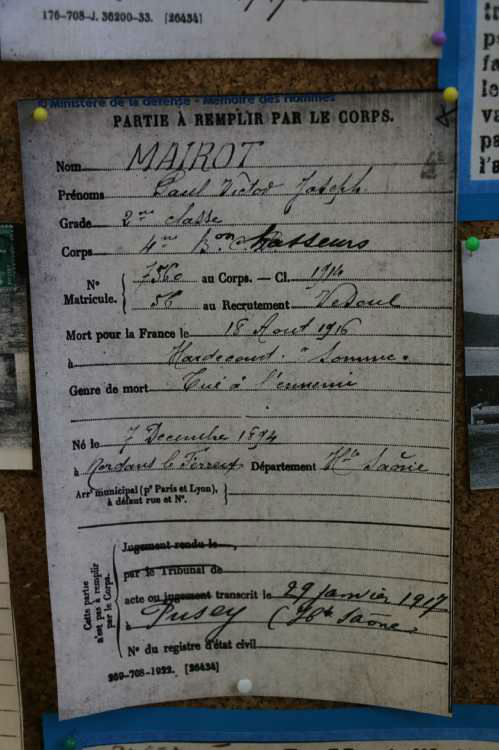 176-708-J. 36200-33. [26434]
© Ministère de la défense - Mémoire des hommes
PARTIE À REMPLIR PAR LE CORPS.
Nom MAIROT
Prénoms Paul Victor Joseph
Grade 2me classe
Corps 4me Bon Chasseurs
N° Matricule. { 7560 au Corps. — Cl. 1914
58 au Recrutement Vesoul
Mort pour la France le 18 Août 1916
à Hardecourt "Somme"
Genre de mort Tué à l'ennemi
Né le 7 Decembre 1894
à Département Hte Saône
Arrt municipal (pr Paris et Lyon),
à défaut rue et N°.
Cette partie
n'est pas à remplir
par le Corps.
Jugement rendu le
par le Tribunal de
acte ou jugement transcrit le 29 janvier 1917
à Pusey (Hte Saône)
N° du registre d'état civil
259-708-1922. [26434]